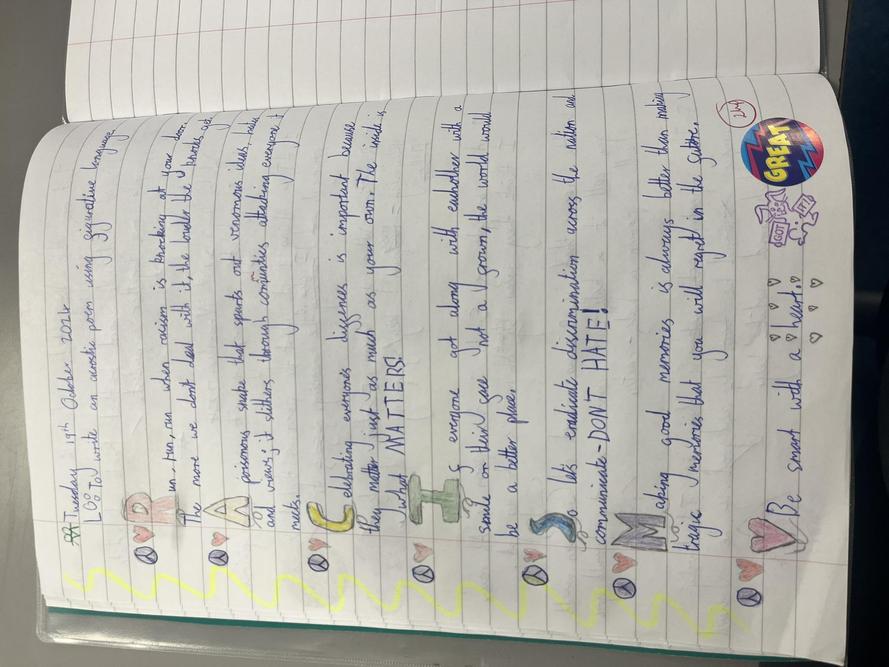 Tuesday 19th October 2021
LO: To write an acrostic poem using figurative language
Run, run, run when racism is knocking at your door.
The more we dont deal with it, the louder the knocks get.
A poisonous snake that spurts out venomous ideas
and views; it slithers through attacking everyone it
meets.
Celebrating everyones differences is important because
they matter just as much as your own. The inside is
what MATTERS!
If everyone got along with eachother with a
smile on their face not a frown, the world would
be a better place.
So lets eradicate discrimination across the nation and
communicate - DON'T HATE!
Making good memories is always better than making
tragic memories that you will regret in the future.
Be smart with a heart.
GOT IT!
GREAT